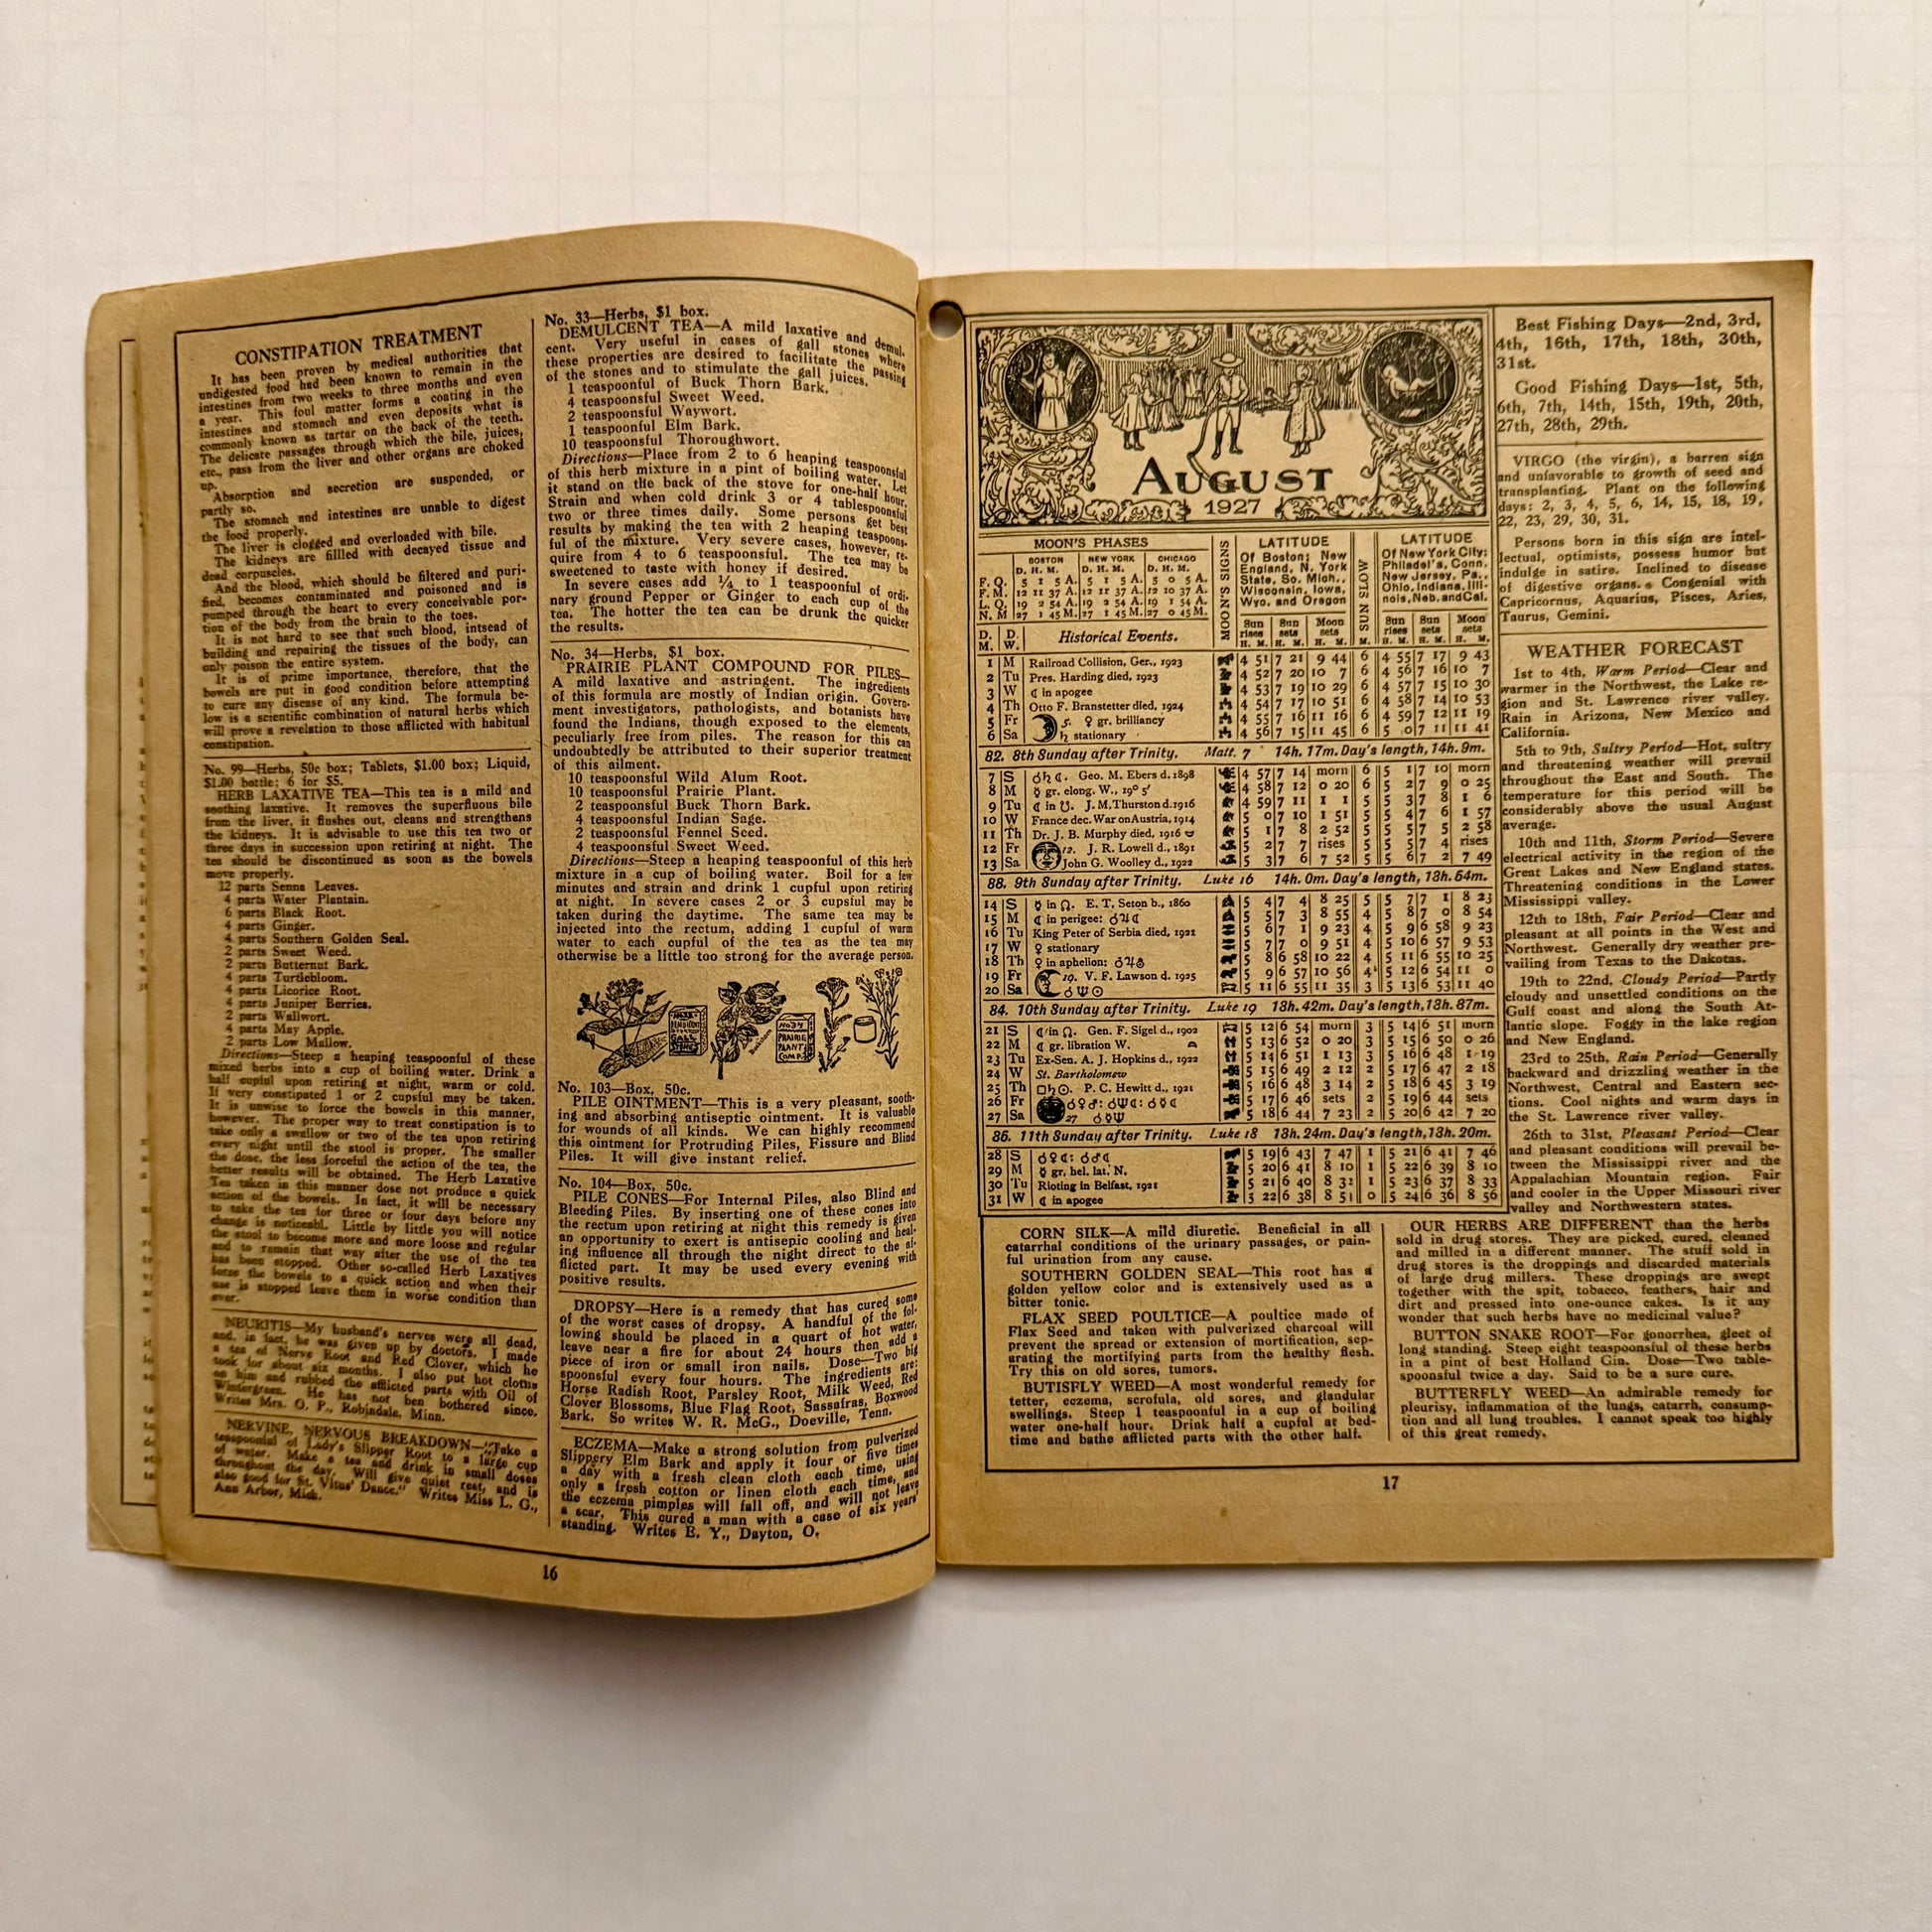 CONSTIPATION TREATMENT
It has been proven by medical authorities that
undigested food had been known to remain in the
intestines from two weeks to three months and even
a year. This foul matter forms a coating in the
intestines and stomach and even deposits what is
commonly known as tartar on the back of the teeth.
The delicate passages through which the bile, juices,
etc., pass from the liver and other organs are choked
up.
Absorption and secretion are suspended, or
partly so.
The stomach and intestines are unable to digest
the food properly.
The liver is clogged and overloaded with bile.
The kidneys are filled with decayed tissue and
dead corpuscles.
And the blood, which should be filtered and puri-
fied, becomes contaminated and poisoned and is
pumped through the heart to every conceivable por-
tion of the body from the brain to the toes.
It is not hard to see that such blood, intsead of
building and repairing the tissues of the body, can
only poison the entire system.
It is of prime importance, therefore, that the
bowels are put in good condition before attempting
to cure any disease of any kind. The formula be-
low is a scientific combination of natural herbs which
will prove a revelation to those afflicted with habitual
constipation.
No. 99—Herbs, 50c box; Tablets, $1.00 box; Liquid,
$1.00 bottle; 6 for $5.
HERB LAXATIVE TEA—This tea is a mild and
soothing laxative. It removes the superfluous bile
from the liver, it flushes out, cleans and strengthens
the kidneys. It is advisable to use this tea two or
three days in succession upon retiring at night. The
tea should be discontinued as soon as the bowels
move properly.
12 parts Senna Leaves.
4 parts Water Plantain.
6 parts Black Root.
4 parts Ginger.
4 parts Southern Golden Seal.
2 parts Sweet Weed.
2 parts Butternut Bark.
4 parts Turtlebloom.
4 parts Licorice Root.
4 parts Juniper Berries.
2 parts Wallwort.
4 parts May Apple.
2 parts Low Mallow.
Directions—Steep a heaping teaspoonful of these
mixed herbs into a cup of boiling water. Drink a
half cupful upon retiring at night, warm or cold.
If very constipated 1 or 2 cupsful may be taken.
It is unwise to force the bowels in this manner,
however. The proper way to treat constipation is to
take only a swallow or two of the tea upon retiring
every night until the stool is proper. The smaller
the dose, the less forceful the action of the tea, the
better results will be obtained. The Herb Laxative
Tea taken in this manner dose not produce a quick
action of the bowels. In fact, it will be necessary
to take the tea for three or four days before any
change is noticeabl. Little by little you will notice
the stool to become more and more loose and regular
and to remain that way after the use of the tea
has been stopped. Other so-called Herb Laxatives
force the bowels to a quick action and when their
use is stopped leave them in worse condition than
ever.
NEURITIS—My husband's nerves were all dead,
and, in fact, he was given up by doctors. I made
a tea of Nerve Root and Red Clover, which he
took for about six months. I also put hot cloths
on him and rubbed the afflicted parts with Oil of
Wintergreen. He has not ben bothered since.
Writes Mrs. O. P., Robindale, Minn.
NERVINE, NERVOUS BREAKDOWN—"Take a
teaspoonful of Lady's Slipper Root to a large cup
of water. Make a tea and drink in small doses
throughout the day. Will give quiet rest, and is
also good for St. Vitus' Dance." Writes Miss L. G.,
Ann Arbor, Mich.
No. 33—Herbs, $1 box.
DEMULCENT TEA—A mild laxative and demul-
cent. Very useful in cases of gall stones where
these properties are desired to facilitate the passing
of the stones and to stimulate the gall juices.
1 teaspoonful of Buck Thorn Bark.
4 teaspoonsful Sweet Weed.
2 teaspoonsful Waywort.
1 teaspoonsful Elm Bark.
10 teaspoonsful Thoroughwort.
Directions—Place from 2 to 6 heaping teaspoonsful
of this herb mixture in a pint of boiling water. Let
it stand on the back of the stove for one-half hour.
Strain and when cold drink 3 or 4 tablespoonsful
two or three times daily. Some persons get best
results by making the tea with 2 heaping teaspoons-
ful of the mixture. Very severe cases, however, re-
quire from 4 to 6 teaspoonsful. The tea may be
sweetened to taste with honey if desired.
In severe cases add ¼ to 1 teaspoonful of ordi-
nary ground Pepper or Ginger to each cup of the
tea. The hotter the tea can be drunk the quicker
the results.
No. 34—Herbs, $1 box.
PRAIRIE PLANT COMPOUND FOR PILES—
A mild laxative and astringent. The ingredients
of this formula are mostly of Indian origin. Govern-
ment investigators, pathologists, and botanists have
found the Indians, though exposed to the elements,
peculiarly free from piles. The reason for this can
undoubtedly be attributed to their superior treatment
of this ailment.
10 teaspoonsful Wild Alum Root.
10 teaspoonsful Prairie Plant.
2 teaspoonsful Buck Thorn Bark.
4 teaspoonsful Indian Sage.
2 teaspoonsful Fennel Seed.
4 teaspoonsful Sweet Weed.
Directions—Steep a heaping teaspoonful of this herb
mixture in a cup of boiling water. Boil for a few
minutes and strain and drink 1 cupful upon retiring
at night. In severe cases 2 or 3 cupsful may be
taken during the daytime. The same tea may be
injected into the rectum, adding 1 cupful of warm
water to each cupful of the tea as the tea may
otherwise be a little too strong for the average person.
No 34
PRAIRIE
PLANT
COMP.
No. 103—Box, 50c.
PILE OINTMENT—This is a very pleasant, sooth-
ing and absorbing antiseptic ointment. It is valuable
for wounds of all kinds. We can highly recommend
this ointment for Protruding Piles, Fissure and Blind
Piles. It will give instant relief.
No. 104—Box, 50c.
PILE CONES—For Internal Piles, also Blind and
Bleeding Piles. By inserting one of these cones into
the rectum upon retiring at night this remedy is given
an opportunity to exert is antiseptic cooling and heal-
ing influence all through the night direct to the af-
flicted part. It may be used every evening with
positive results.
DROPSY—Here is a remedy that has cured some
of the worst cases of dropsy. A handful of the fol-
lowing should be placed in a quart of hot water,
leave near a fire for about 24 hours then add a
piece of iron or small iron nails. Dose—Two big
spoonsful every four hours. The ingredients are:
Horse Radish Root, Parsley Root, Milk Weed, Red
Clover Blossoms, Blue Flag Root, Sassafras, Boxwood
Bark. So writes W. R. McG., Doeville, Tenn.
ECZEMA—Make a strong solution from pulverized
Slippery Elm Bark and apply it four or five times
a day with a fresh clean cloth each time, using
only a fresh cotton or linen cloth each time, and
the eczema pimples will fall off, and will not leave
a scar. This cured a man with a case of six years'
standing. Writes E. Y., Dayton, O.
16
AUGUST
1927
MOON'S PHASES
BOSTON NEW YORK CHICAGO
D. H. M. D. H. M. D. H. M.
F. Q. 5 1 5 A. 5 1 5 A. 5 0 5 A.
F. M. 12 11 37 A. 12 11 37 A. 12 10 37 A.
L. Q. 19 2 54 A. 19 2 54 A. 19 1 54 A.
N. M 27 1 45 M. 27 1 45 M. 27 0 45 M.
MOON'S SIGNS
LATITUDE
Of Boston; New
England, N. York
State, So. Mich.,
Wisconsin, Iowa,
Wyo. and Oregon
SUN SLOW
LATITUDE
Of New York City;
Philadel'a, Conn.
New Jersey, Pa.,
Ohio, Indiana, Illi-
nois, Neb. and Cal.
D. M. D. W. Historical Events.
Sun rises Sun sets Moon sets Sun rises Sun sets Moon sets
H. M. H. M. H. M. M. H. M. H. M. H. M.
1 M Railroad Collision, Ger., 1923 4 51 7 21 9 44 6 4 55 7 17 9 43
2 Tu Pres. Harding died, 1923 4 52 7 20 10 7 6 4 56 7 16 10 7
3 W ☾ in apogee 4 53 7 19 10 29 6 4 57 7 15 10 30
4 Th Otto F. Branstetter died, 1924 4 54 7 17 10 51 6 4 58 7 14 10 53
5 Fr 5. ♀ gr. brilliancy 4 55 7 16 11 16 6 4 59 7 12 11 19
6 Sa ♄ stationary 4 56 7 15 11 45 6 5 0 7 11 11 41
82. 8th Sunday after Trinity. Matt. 7 14h. 17m. Day's length, 14h. 9m.
7 S ☌♄☾. Geo. M. Ebers d. 1898 4 57 7 14 morn 6 5 1 7 10 morn
8 M ☿ gr. elong. W., 19° 5' 4 58 7 12 0 20 6 5 2 7 9 0 25
9 Tu ☾ in ☋. J. M. Thurston d. 1916 4 59 7 11 1 1 5 5 3 7 8 1 6
10 W France dec. War on Austria, 1914 5 0 7 10 1 51 5 5 4 7 6 1 57
11 Th Dr. J. B. Murphy died, 1916 5 1 7 8 2 52 5 5 5 7 5 2 58
12 Fr 12. J. R. Lowell d., 1891 5 2 7 7 rises 5 5 5 7 4 rises
13 Sa John G. Woolley d., 1922 5 3 7 6 7 52 5 5 6 7 2 7 49
88. 9th Sunday after Trinity. Luke 16 14h. 0m. Day's length, 13h. 54m.
14 S ☿ in ☊. E. T. Seton b., 1860 5 4 7 4 8 25 5 5 7 7 1 8 23
15 M ☾ in perigee: ☌♃☾ 5 5 7 3 8 55 4 5 8 7 0 8 54
16 Tu King Peter of Serbia died, 1921 5 6 7 1 9 23 4 5 9 6 58 9 23
17 W ♀ stationary 5 7 7 0 9 51 4 5 10 6 57 9 53
18 Th ♀ in aphelion: 5 8 6 58 10 22 4 5 11 6 55 10 25
19 Fr 19. V. F. Lawson d. 1925 5 9 6 57 10 56 4 5 12 6 54 11 0
20 Sa ☌♆☉ 5 11 6 55 11 35 3 5 13 6 53 11 40
84. 10th Sunday after Trinity. Luke 19 13h. 42m. Day's length, 13h. 37m.
21 S ☾ in ☊. Gen. F. Sigel d., 1902 5 12 6 54 morn 3 5 14 6 51 morn
22 M ☾ gr. libration W. 5 13 6 52 0 20 3 5 15 6 50 0 26
23 Tu Ex-Sen. A. J. Hopkins d., 1922 5 14 6 51 1 13 3 5 16 6 48 1 19
24 W St. Bartholomew 5 15 6 49 2 12 2 5 17 6 47 2 18
25 Th □♄☉. P. C. Hewitt d., 1921 5 16 6 48 3 14 2 5 18 6 45 3 19
26 Fr ☌♀♂: ☌♆☾: ☌☿☾ 5 17 6 46 sets 2 5 19 6 44 sets
27 Sa 27 ☌☿♆ 5 18 6 44 7 23 2 5 20 6 42 7 20
85. 11th Sunday after Trinity. Luke 18 13h. 24m. Day's length, 13h. 20m.
28 S ☌♀☾: ☌♂☾ 5 19 6 43 7 47 1 5 21 6 41 7 46
29 M ☿ gr. hel. lat. N. 5 20 6 41 8 10 1 5 22 6 39 8 10
30 Tu Rioting in Belfast, 1921 5 21 6 40 8 32 1 5 23 6 37 8 33
31 W ☾ in apogee 5 22 6 38 8 51 0 5 24 6 36 8 56
Best Fishing Days—2nd, 3rd,
4th, 16th, 17th, 18th, 30th,
31st.
Good Fishing Days—1st, 5th,
6th, 7th, 14th, 15th, 19th, 20th,
27th, 28th, 29th.
VIRGO (the virgin), a barren sign
and unfavorable to growth of seed and
transplanting. Plant on the following
days: 2, 3, 4, 5, 6, 14, 15, 18, 19,
22, 23, 29, 30, 31.
Persons born in this sign are intel-
lectual, optimists, possess humor but
indulge in satire. Inclined to disease
of digestive organs. Congenial with
Capricornus, Aquarius, Pisces, Aries,
Taurus, Gemini.
WEATHER FORECAST
1st to 4th, Warm Period—Clear and
warmer in the Northwest, the Lake re-
gion and St. Lawrence river valley.
Rain in Arizona, New Mexico and
California.
5th to 9th, Sultry Period—Hot, sultry
and threatening weather will prevail
throughout the East and South. The
temperature for this period will be
considerably above the usual August
average.
10th and 11th, Storm Period—Severe
electrical activity in the region of the
Great Lakes and New England states.
Threatening conditions in the Lower
Mississippi valley.
12th to 18th, Fair Period—Clear and
pleasant at all points in the West and
Northwest. Generally dry weather pre-
vailing from Texas to the Dakotas.
19th to 22nd, Cloudy Period—Partly
cloudy and unsettled conditions on the
Gulf coast and along the South At-
lantic slope. Foggy in the lake region
and New England.
23rd to 25th, Rain Period—Generally
backward and drizzling weather in the
Northwest, Central and Eastern sec-
tions. Cool nights and warm days in
the St. Lawrence river valley.
26th to 31st, Pleasant Period—Clear
and pleasant conditions will prevail be-
tween the Mississippi river and the
Appalachian Mountain region. Fair
and cooler in the Upper Missouri river
valley and Northwestern states.
CORN SILK—A mild diuretic. Beneficial in all
catarrhal conditions of the urinary passages, or pain-
ful urination from any cause.
SOUTHERN GOLDEN SEAL—This root has a
golden yellow color and is extensively used as a
bitter tonic.
FLAX SEED POULTICE—A poultice made of
Flax Seed and taken with pulverized charcoal will
prevent the spread or extension of mortification, sep-
arating the mortifying parts from the healthy flesh.
Try this on old sores, tumors.
BUTISFLY WEED—A most wonderful remedy for
tetter, eczema, scrofula, old sores, and glandular
swellings. Steep 1 teaspoonful in a cup of boiling
water one-half hour. Drink half a cupful at bed-
time and bathe afflicted parts with the other half.
OUR HERBS ARE DIFFERENT than the herbs
sold in drug stores. They are picked, cured, cleaned
and milled in a different manner. The stuff sold in
drug stores is the droppings and discarded materials
of large drug millers. These droppings are swept
together with the spit, tobacco, feathers, hair and
dirt and pressed into one-ounce cakes. Is it any
wonder that such herbs have no medicinal value?
BUTTON SNAKE ROOT—For gonorrhea, gleet of
long standing. Steep eight teaspoonsful of these herbs
in a pint of best Holland Gin. Dose—Two table-
spoonsful twice a day. Said to be a sure cure.
BUTTERFLY WEED—An admirable remedy for
pleurisy, inflammation of the lungs, catarrh, consump-
tion and all lung troubles. I cannot speak too highly
of this great remedy.
17